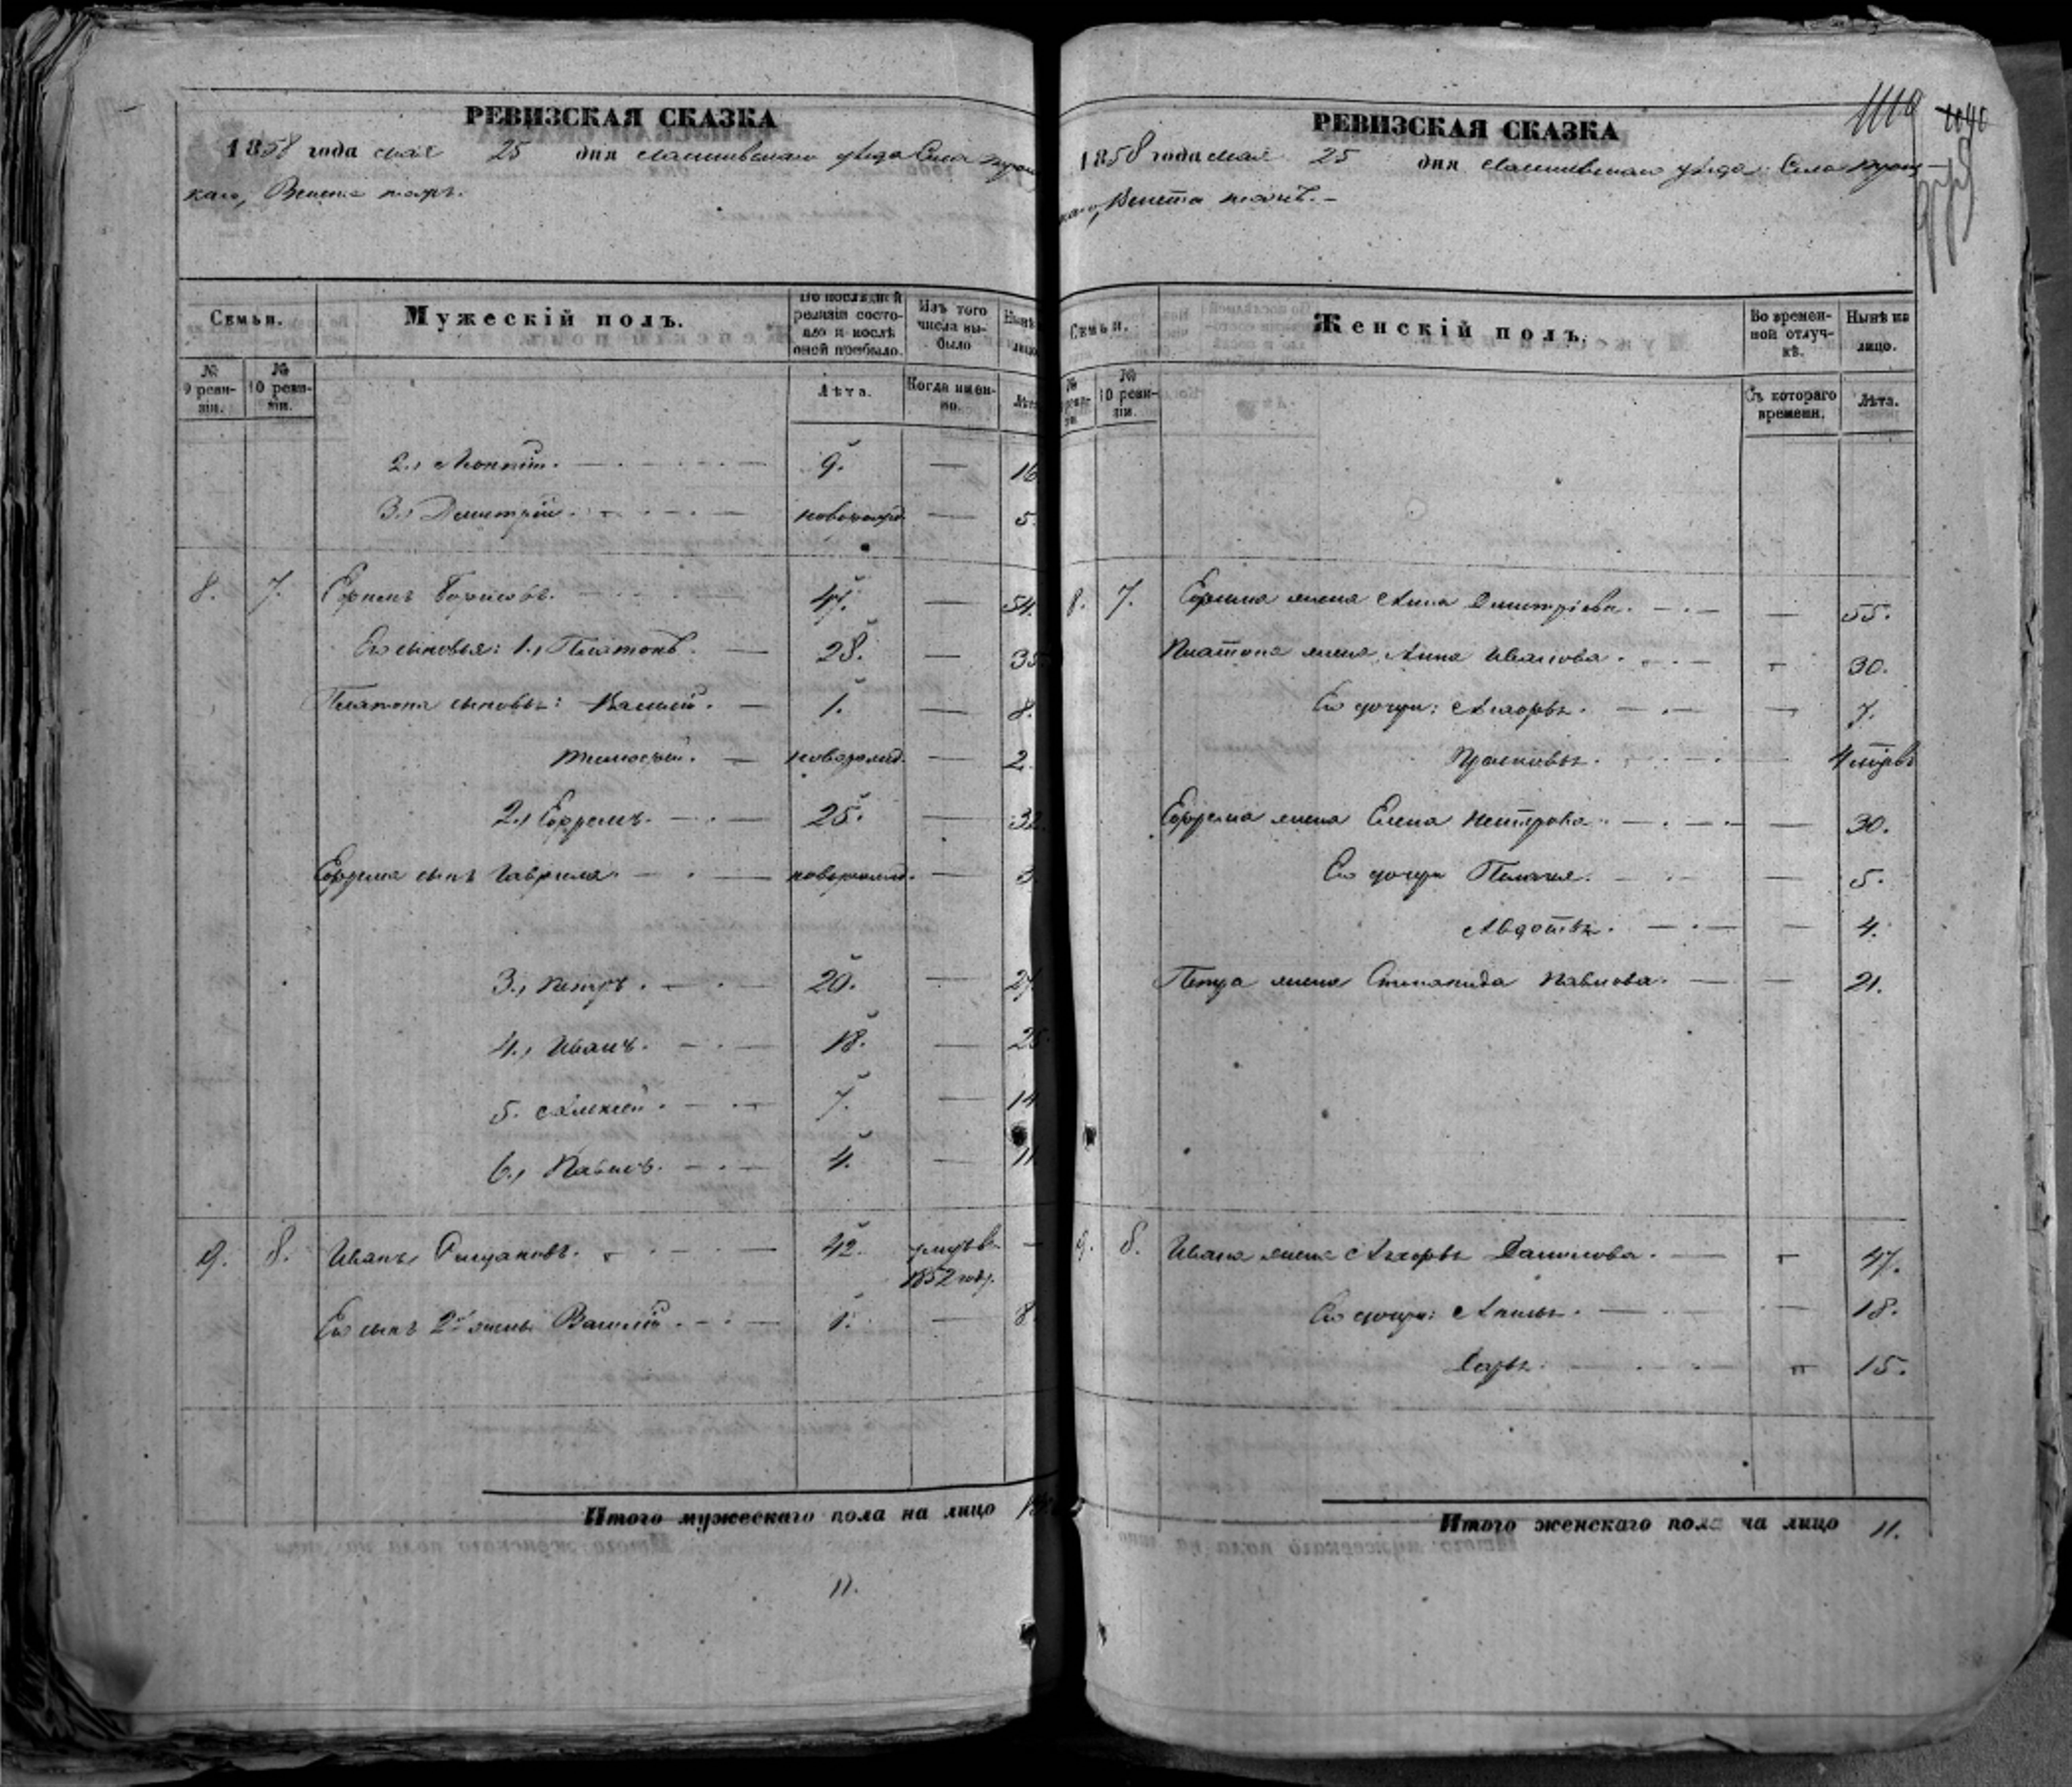 РЕВИЗСКАЯ СКАЗКА
1858 года мая 25 дня уѣзда Села
каго, Венета тожъ.
Семьи.
Мужескій полъ.
По послѣдней ревизіи состояло и послѣ оной прибыло.
Изъ того числа выбыло
Нынѣ лицо
№ 9 ревизіи.
№ 10 ревизіи.
Лѣта.
Когда именно.
Лѣта
2., 9. — 16
3., Дмитрій. новорожд. — 5.
8. 7. Борисовъ. 47. — 54.
Его сыновья: 1., Платонъ. 28. — 35
Платона сыновья: 1. — 8.
Тимофей. новорожд. — 2.
2., Ефремъ. 25. — 32.
Ефрема сынъ Гаврила. новорожд. — 3
3., Петръ. 20. — 27
4., Иванъ. 18. — 25.
5. Алексей. 7. — 14
6., Павелъ. 4. — 11
9. 8. Иванъ 42. умръ в 1852 году. —
Его сынъ 2й жены Василій. 1. — 8
Итого мужескаго пола на лицо
11.
РЕВИЗСКАЯ СКАЗКА
1110
1040
1858 года мая 25 дня уѣзда Села
каго, Венета тожъ.
Семьи.
Женскій полъ.
Во временной отлучкѣ.
Нынѣ на лицо.
№ ревизіи
№ 10 ревизіи.
Съ котораго времени.
Лѣта.
8. 7. жена Анна Дмитріева. — 55.
Платона жена Анна Иванова. 30.
Его дочери: — 7.
Прасковья. — 4 мѣсяцъ
Ефрема жена Елена Нестерова. — 30.
Его дочери Пелагея. — 5.
Авдотья. — 4.
Петра жена Степанида Павлова. — 21.
9. 8. Ивана жена Данилова. 47.
Его дочери: — 18.
Дарья. 15.
Итого женскаго пола на лицо 11.